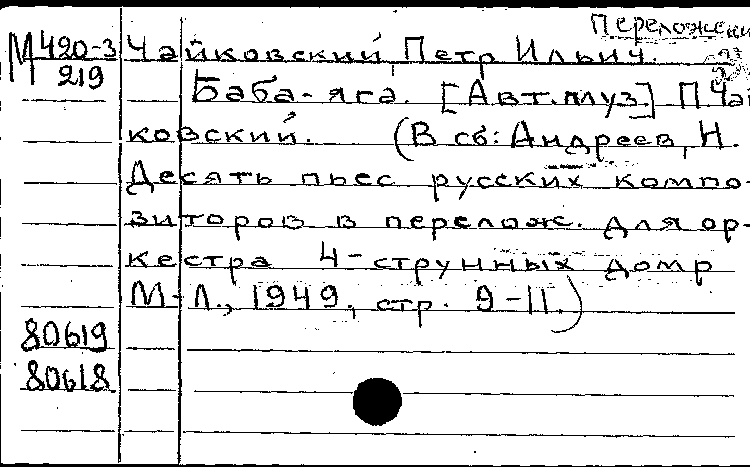 Переложени
М 420-3 Чайковский, Петр Ильич.
219
Баба-яга. [Авт.муз] П Чай
ковский. (В сб: Андреев, Н.
Десять пьес русских компо-
зиторов в перелож. для ор-
кестра 4-струнных домр
М-Л., 1949, стр. 9-11.)
80619
80618